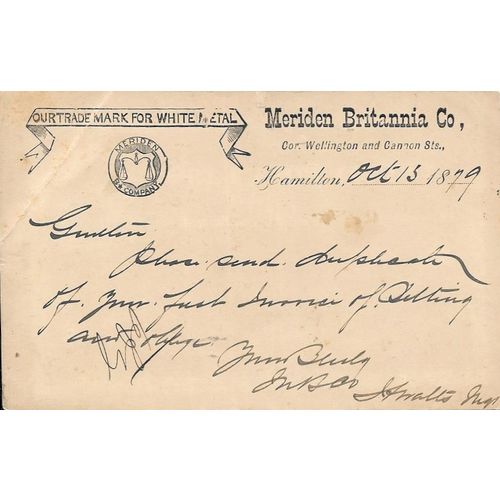 OUR TRADE MARK FOR WHITE METAL
Meriden Britannia Co,
MERIDEN
B. COMPANY
Cor. Wellington and Cannon Sts.,
Hamilton, Oct 13 1879
Please send duplicate
of your last Invoice of
and oblige
Yours
M B Co
J H Watts Mgr